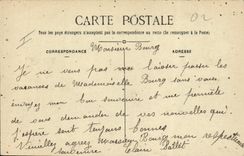 CARTE POSTALE
Tous les pays étrangers n'acceptent pas la correspondance au recto (Se renseigner à la Poste)
CORRESPONDANCE
ADRESSE
Monsieur Bourg
Je ne veux pas laisser passer les
vacances de Mademoiselle Bourg sans vous
envoyer mon bon souvenir et me permettre
de vous demander de vos nouvelles que
j'espère sont toujours bonnes
Veuillez agréer Monsieur Bourg mon respectueux
souvenir